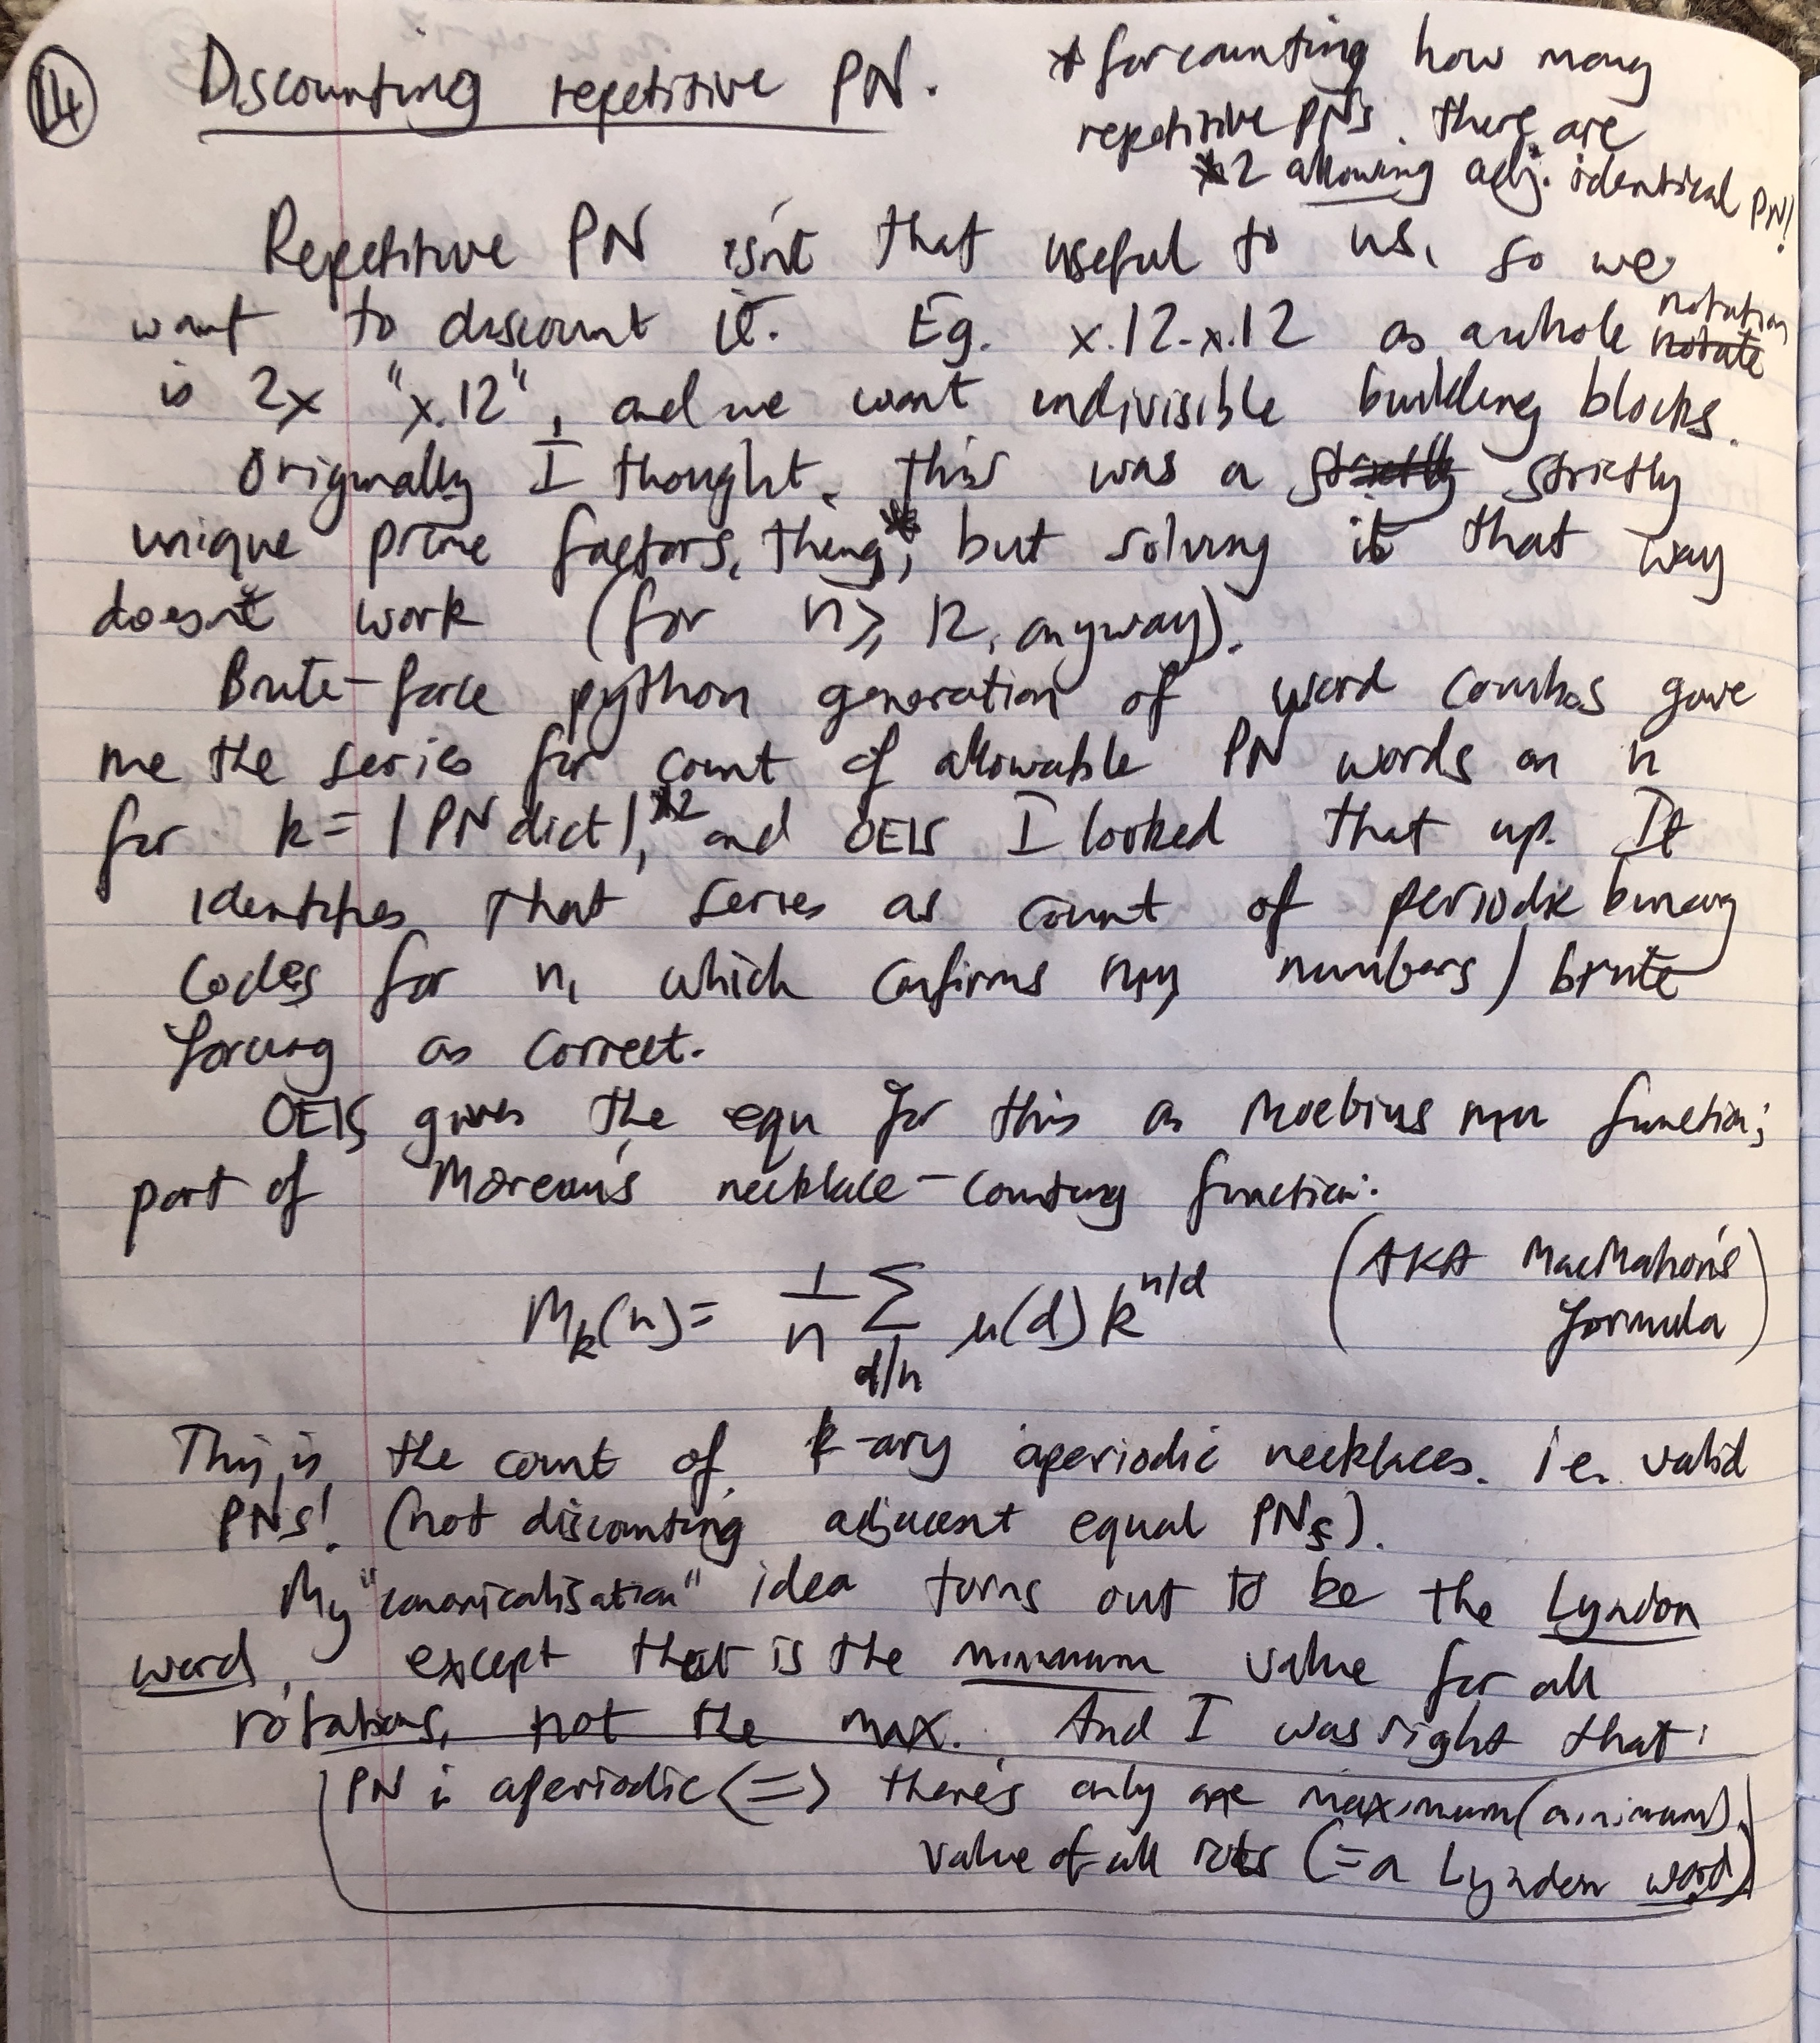 14
Discounting repetitive PN.
* for counting how many
repetitive PNs there are
*2 allowing adj. identical PN!
Repetitive PN isn't that useful to us, so we
want to discount it. Eg. x.12-x.12 as a whole notate notation
is 2x "x.12", and we want indivisible building blocks.
Originally I thought this was a strictly strictly
unique prime factors thing*, but solving it that way
doesn't work (for n ≥ 12, anyway).
Brute-force python generation of word combos gave
me the series for count of allowable PN words on n
for k = |PN dict|,*2 and OEIS I looked that up. It
identifies that series as count of periodic binary
codes for n, which confirms my numbers / brute
forcing as correct.
OEIS gives the equ for this as Moebius mu function;
part of Moreau's necklace-counting function:
Mk(n) = 1/n ∑ d/n μ(d) k^n/d
(AKA MacMahon's
formula)
This is the count of k-ary aperiodic necklaces. i.e. valid
PNs! (not discounting adjacent equal PNs).
My "canonicalisation" idea turns out to be the Lyndon
word, except that is the minimum value for all
rotations, not the max. And I was right that:
PN is aperiodic <=> there's only one maximum (minimum)
value of all rots (= a Lyndon word)